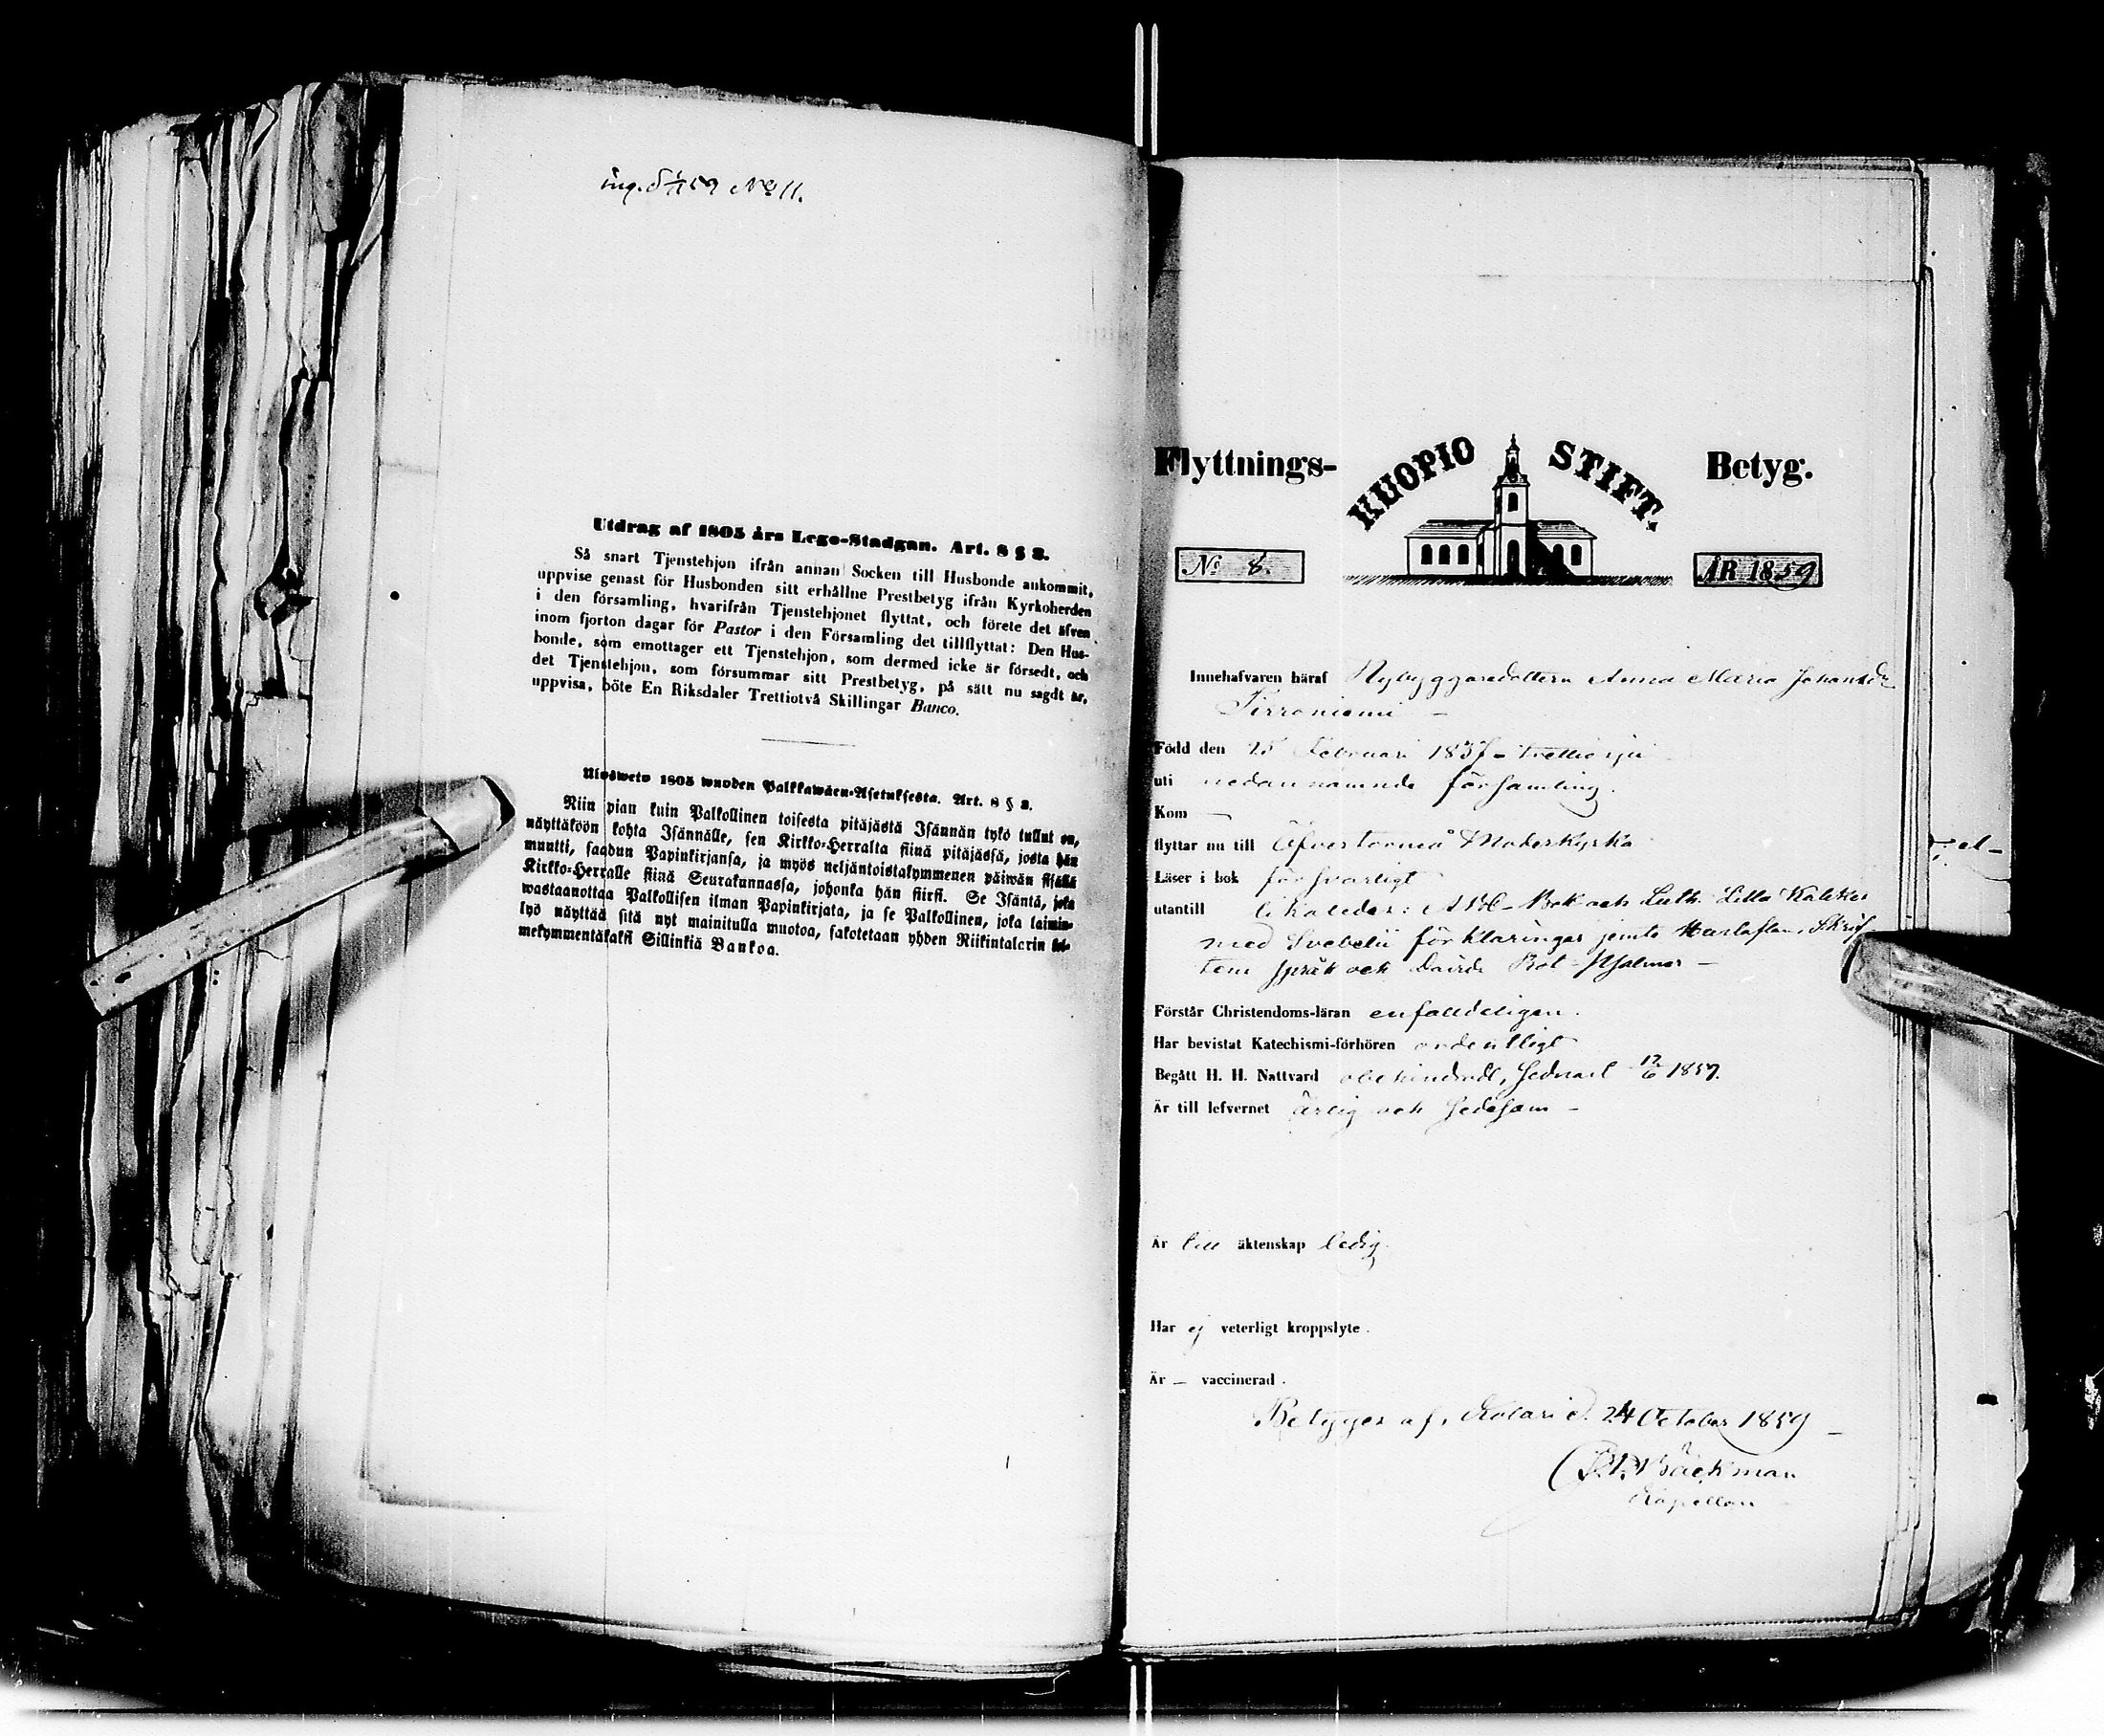 ing. 5/11 59 No 11.
Utdrag af 1805 års Lego-Stadgan. Art. 8 § 2.
Så snart Tjenstehjon ifrån annan Socken till Husbonde ankommit,
uppvise genast för Husbonden sitt erhållne Prestbetyg ifrån Kyrkoherden
i den församling, hvarifrån Tjenstehjonet flyttat, och förete det äfven
inom fjorton dagar för Pastor i den Församling det tillflyttat: Den Hus-
bonde, som emottager ett Tjenstehjon, som dermed icke är försedt, och
det Tjenstehjon, som försummar sitt Prestbetyg, på sätt nu sagdt är,
uppvisa, böte En Riksdaler Trettiotvå Skillingar Banco.
Ulosweto 1805 wuoden Palkkawäen-Asetuksesta. Art. 8 § 2.
Niin pian kuin Palkollinen toisesta pitäjästä Isännän tykö tullut on,
näyttäköön kohta Isännälle, sen Kirkko-Herralta siinä pitäjässä, josta hän
muutti, saadun Papinkirjansa, ja myös neljäntoistakymmenen päiwän sisällä
Kirkko-Herralle siinä Seurakunnassa, johonka hän siirsi. Se Isäntä, joka
wastaanottaa Palkollisen ilman Papinkirjata, ja se Palkollinen, joka laimin-
lyö näyttää sitä nyt mainitulla muotoa, sakotetaan yhden Riikintalarin kol-
mekymmentäkaksi Sillinkiä Bankoa.
Flyttnings- KUOPIO STIFT. Betyg.
No 8. ÅR 1859
Innehafvaren häraf Nybyggaredottern Anna Maria Johansdr
Tirroniemi -
Född den 25 Februari 1837 - trettiosju
uti nedannämnde församling.
Kom —
flyttar nu till Öfvertorneå Moderkyrka
Läser i bok försvarligt
utantill likaledes: ABC-Bok och Luth. Lilla Kateches
med Svebelii förklaringar jemte Hustaflan, Skrif-
tens språk och Davids Bot-Psalmer -
Förstår Christendoms-läran enfalldeligen.
Har bevistat Katechismi-förhören ordentligt
Begått H. H. Nattvard obehindradt, sednast 12/6 1859.
Är till lefvernet ärlig och sedesam -
Är till äktenskap ledig.
Har ej veterligt kroppslyte.
Är — vaccinerad.
Betygar af, Kolari d. 24 October 1859 -
Bäckman
Kapellan